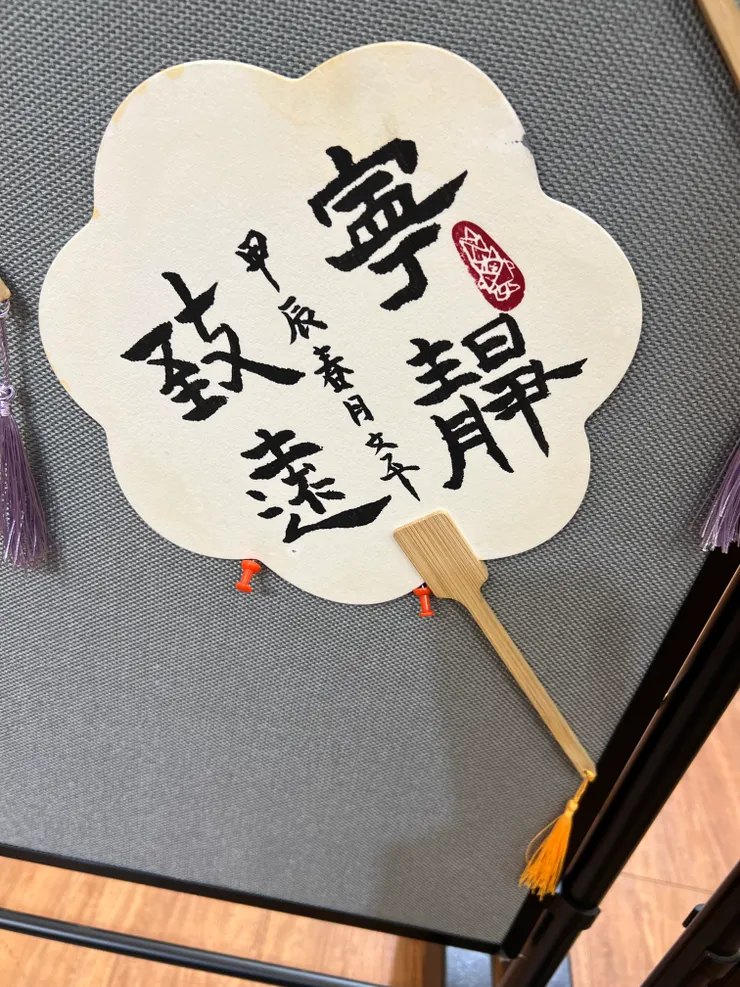 寧靜
致遠
甲辰春月文平